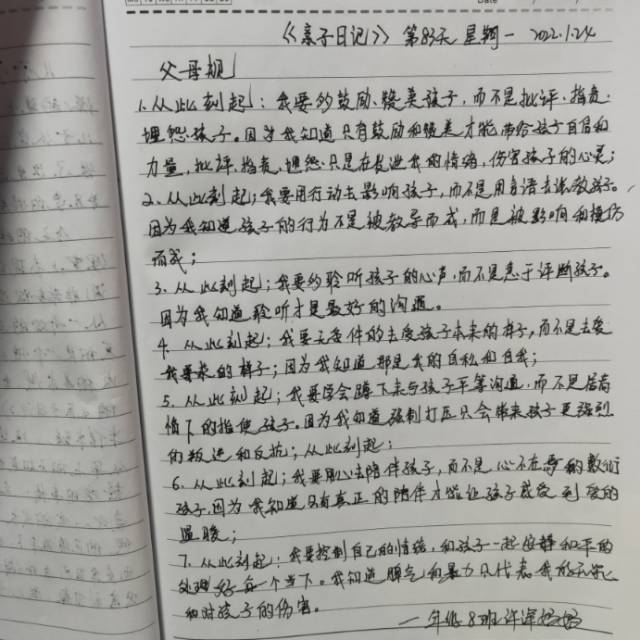 《亲子日记》 第83天 星期一 2022.1.24
父母规
1.从此刻起：我要多鼓励、赞美孩子，而不是批评、指责、
埋怨孩子。因为我知道只有鼓励和赞美才能带给孩子自信和
力量，批评、指责、埋怨只是在发泄我的情绪，伤害孩子的心灵；
2、从此刻起；我要用行动去影响孩子，而不是用言语去说教孩子。
因为我知道孩子的行为不是被教导而成，而是被影响和模仿
而成；
3．从此刻起；我要多聆听孩子的心声，而不是急于评断孩子。
因为我知道聆听才是最好的沟通。
4．从此刻起；我要无条件的去爱孩子本来的样子，而不是去爱
我要求的样子；因为我知道那是我的自私和自我；
5．从此刻起；我要学会蹲下来与孩子平等沟通，而不是居高
临下的指使孩子。因为我知道强制打压只会带来孩子更强烈
的叛逆和反抗；从此刻起；
6．从此刻起；我要用心去陪伴孩子，而不是心不在焉的敷衍
孩子因为我知道只有真正的陪伴才能让孩子感受到爱的
温暖；
7．从此刻起：我要控制自己的情绪，和孩子一起安静和平的
处理好每一个当下。我知道脾气和暴力只代表我的
和对孩子的伤害。
一年级8班许泽妈妈